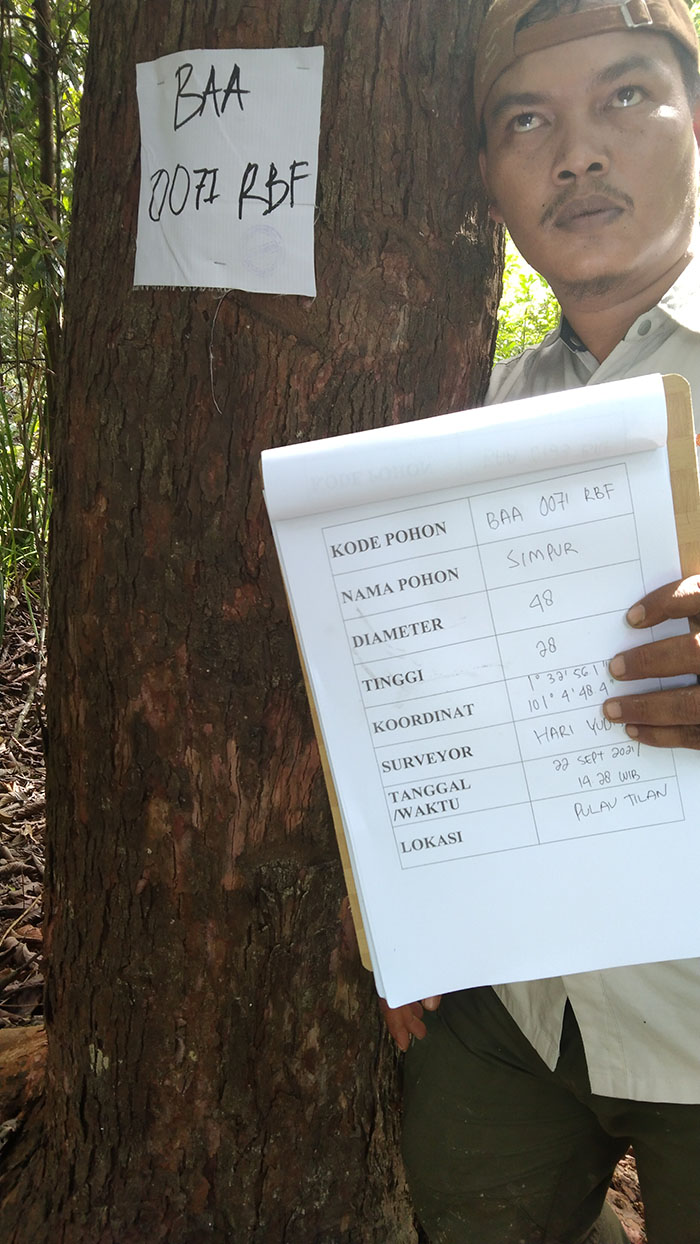 BAA
0071 RBF
KODE POHON BAA 0071 RBF
NAMA POHON SIMPUR
DIAMETER 48
TINGGI 28
KOORDINAT 1° 32' 56 1"
101° 4' 48.4"
SURVEYOR HARI
TANGGAL 22 SEPT 2021/
/WAKTU 14 28 WIB
LOKASI PULAU TILAN